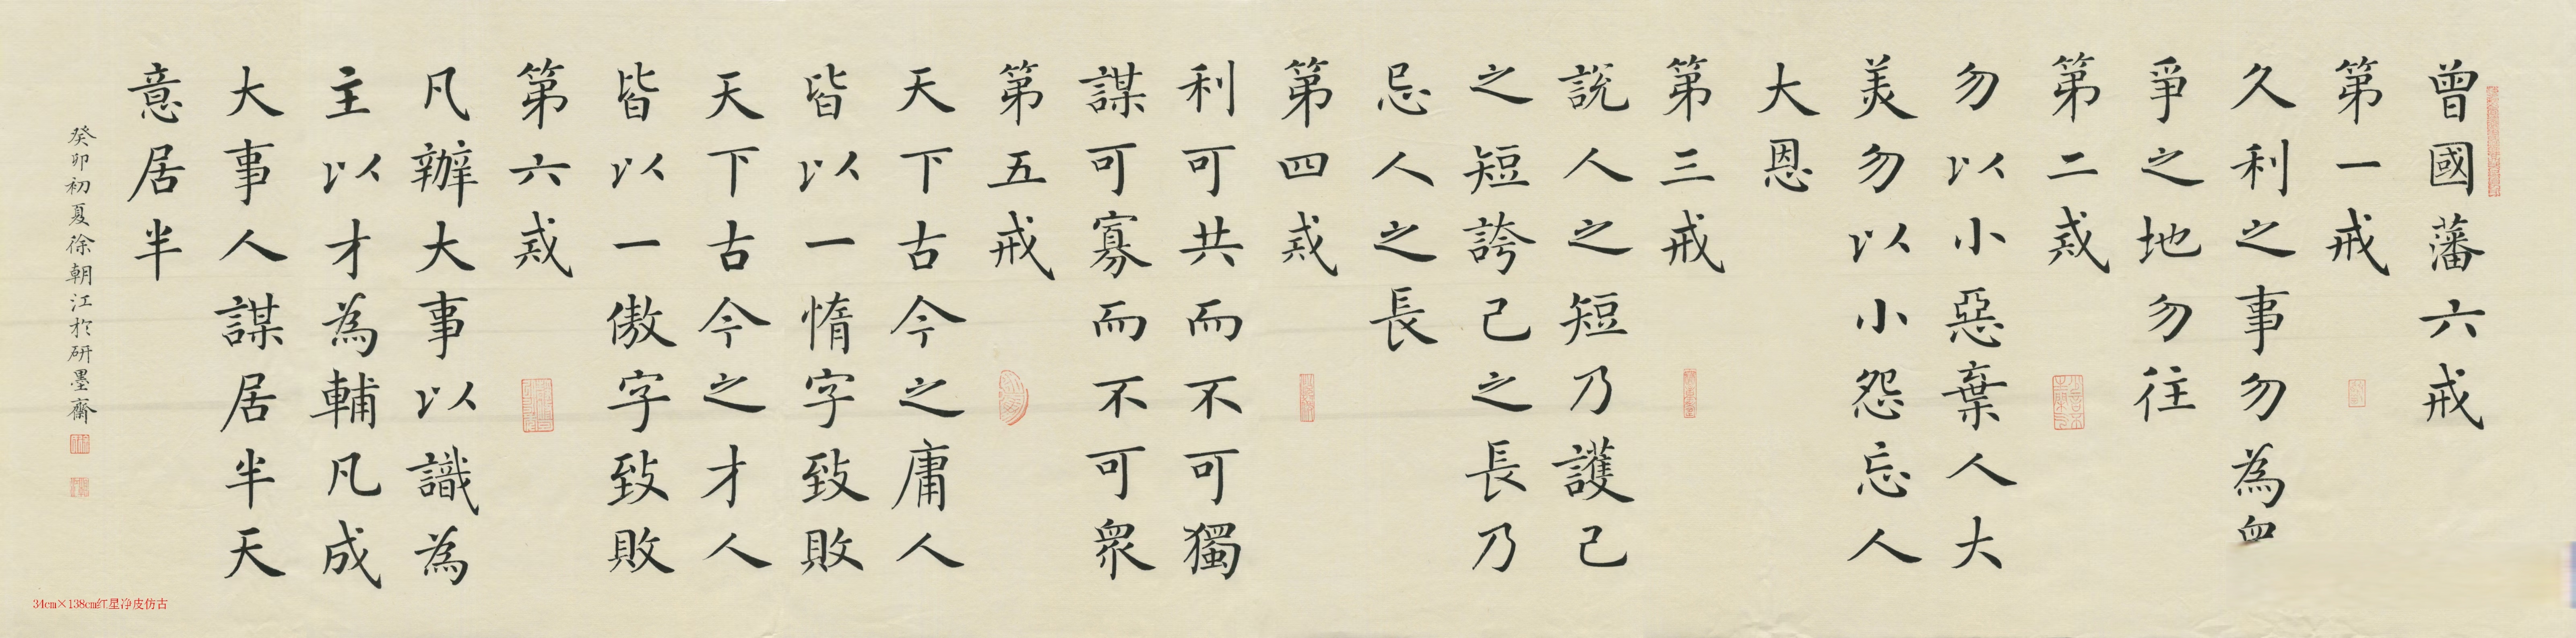 曾國藩六戒
第一戒
久利之事勿為
爭之地勿往
第二戒
勿以小惡棄人大
美勿以小怨忘人
大恩
第三戒
説人之短乃護己
之短誇己之長乃
忌人之長
第四戒
利可共而不可獨
謀可寡而不可衆
第五戒
天下古今之庸人
皆以一惰字致敗
天下古今之才人
皆以一傲字致敗
第六戒
凡辦大事以識為
主以才為輔凡成
大事人謀居半天
意居半
癸卯初夏徐朝江於研墨齋
34cm×138cm红星净皮仿古